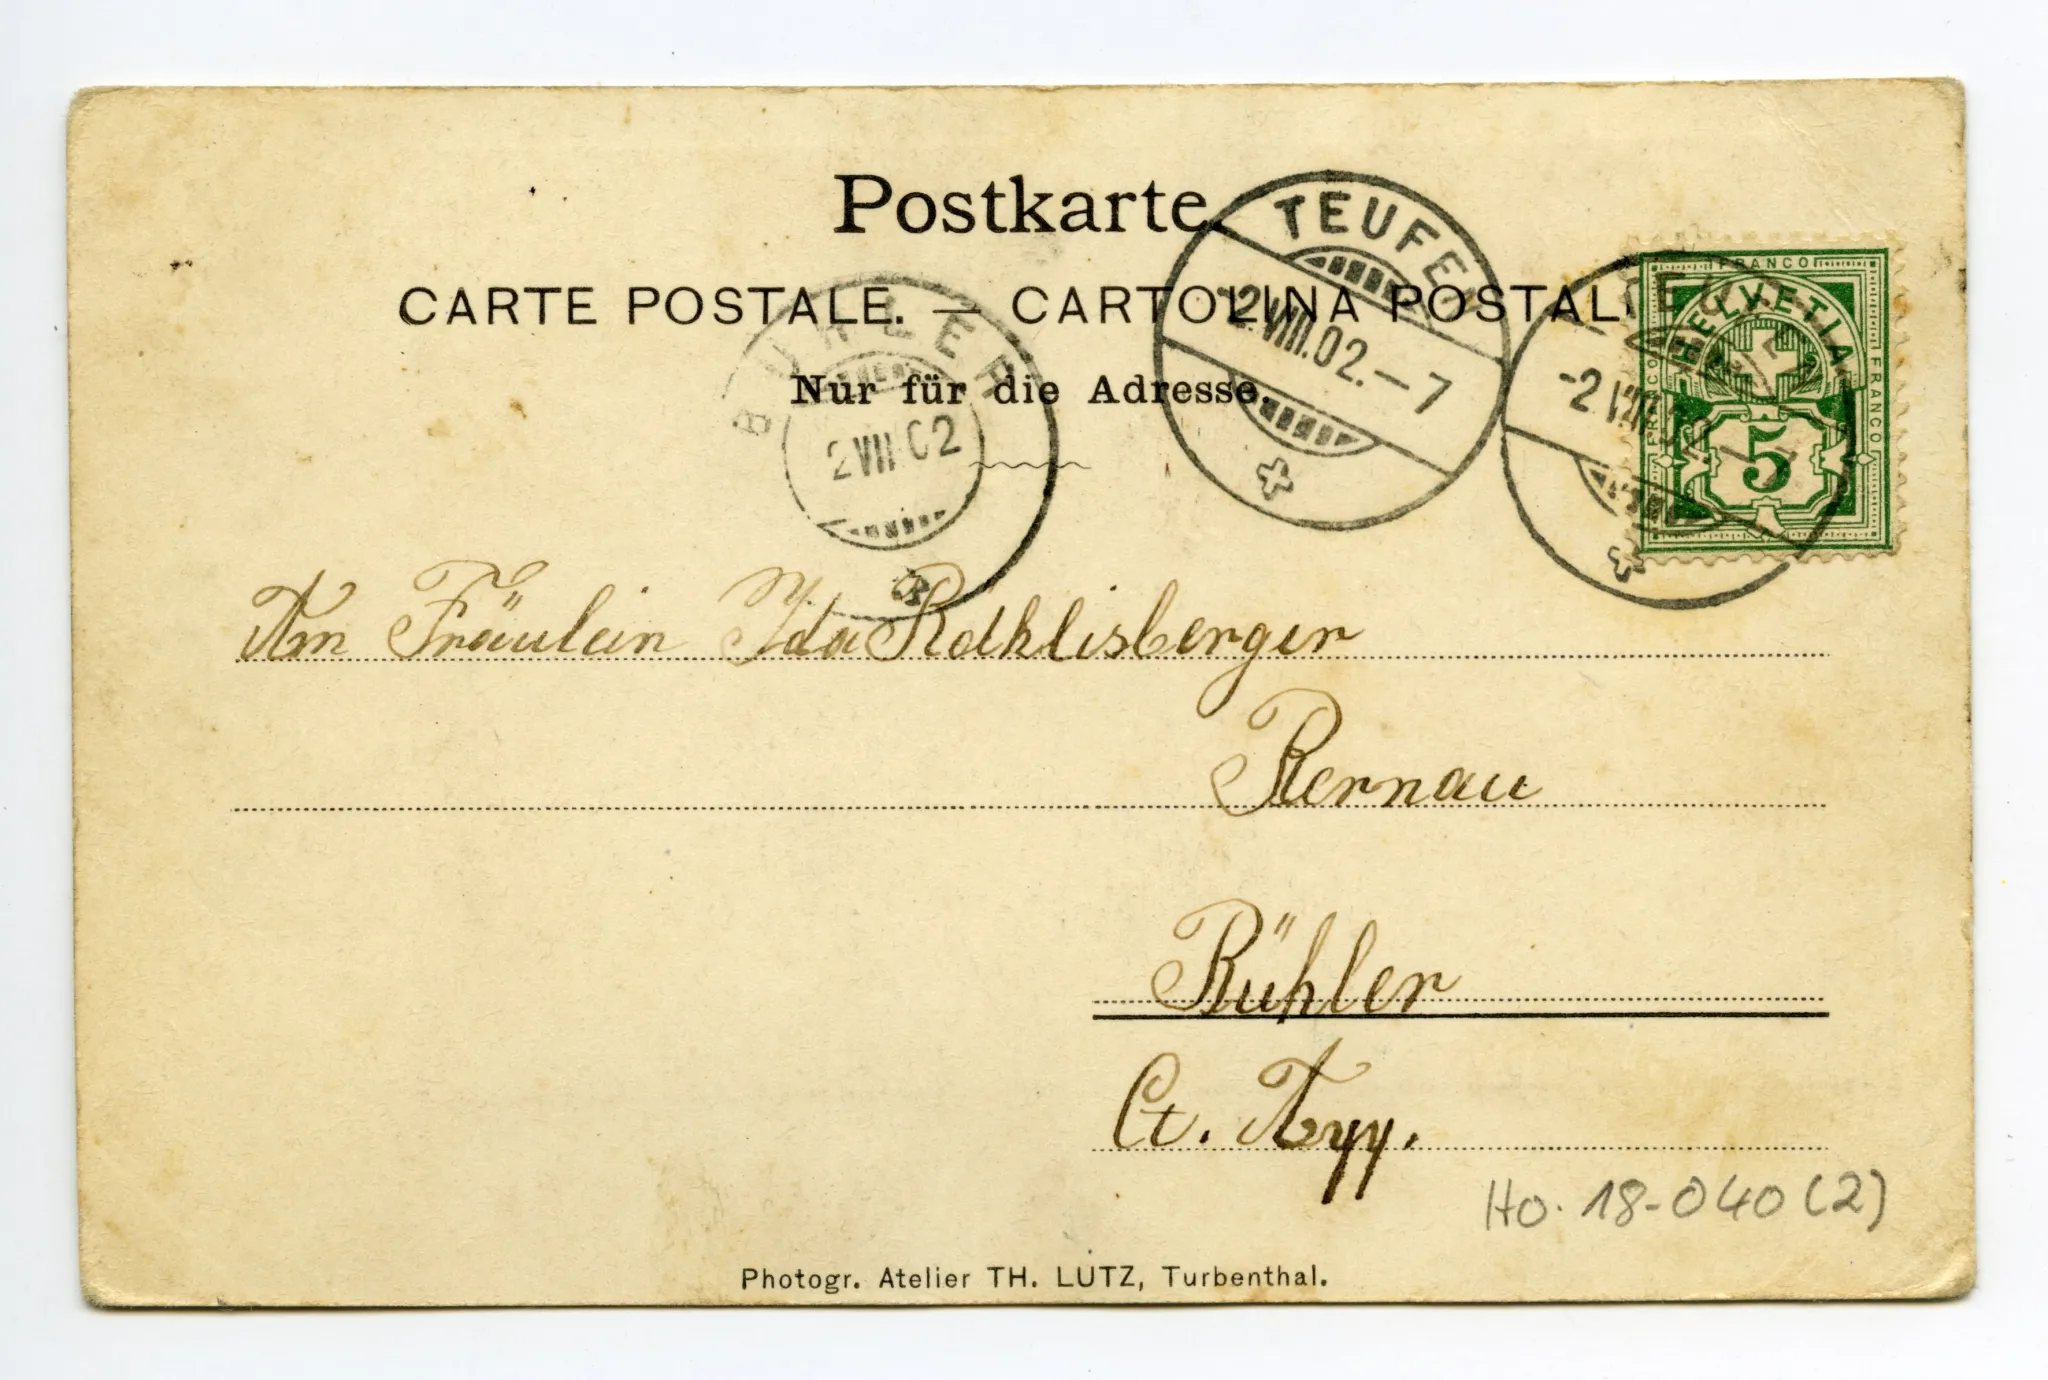 Postkarte.
CARTE POSTALE. — CARTOLINA POSTALE
Nur für die Adresse.
BÜHLER
2 VIII 02
TEUFEN
-2.VIII.02.-7
TEUFEN
-2.VIII.02.-7
FRANCO
FRANCO
FRANCO
HELVETIA
5
An Fräulein Ida Rothlisberger
Bernau
Bühler
Ct. App.
Ho. 18-040 (2)
Photogr. Atelier TH. LUTZ, Turbenthal.